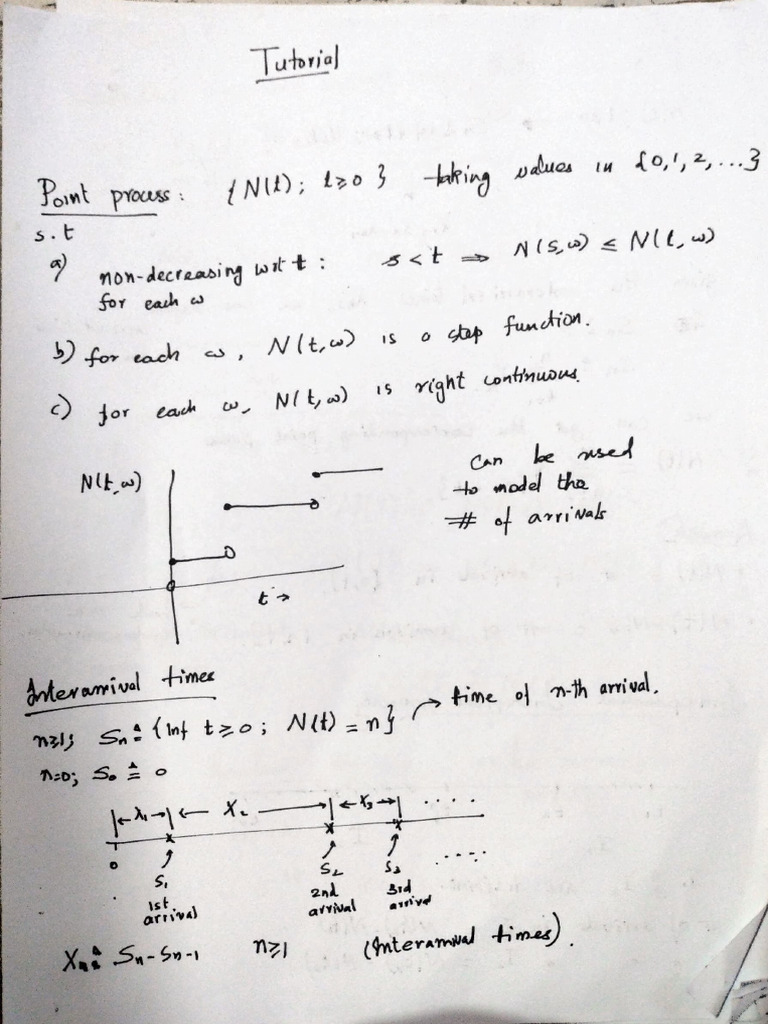 Tutorial
Point process: {N(t); t≥0} taking values in {0,1,2,...}
s.t
a) non-decreasing wrt t: s<t ⇒ N(s,ω) ≤ N(t,ω)
for each ω
b) for each ω, N(t,ω) is a step function.
c) for each ω, N(t,ω) is right continuous.
N(t,ω)
t→
can be used
to model the
# of arrivals
Interarrival times
n≥1; Sn ≜ {inf t≥0; N(t) = n} → time of n-th arrival.
n=0; S0 ≜ 0
|←X1→|← X2 →|←X3→| ....
0
S1 S2 S3 ....
1st arrival 2nd arrival 3rd arrival
Xn ≜ Sn-Sn-1 n≥1 (Interarrival times).